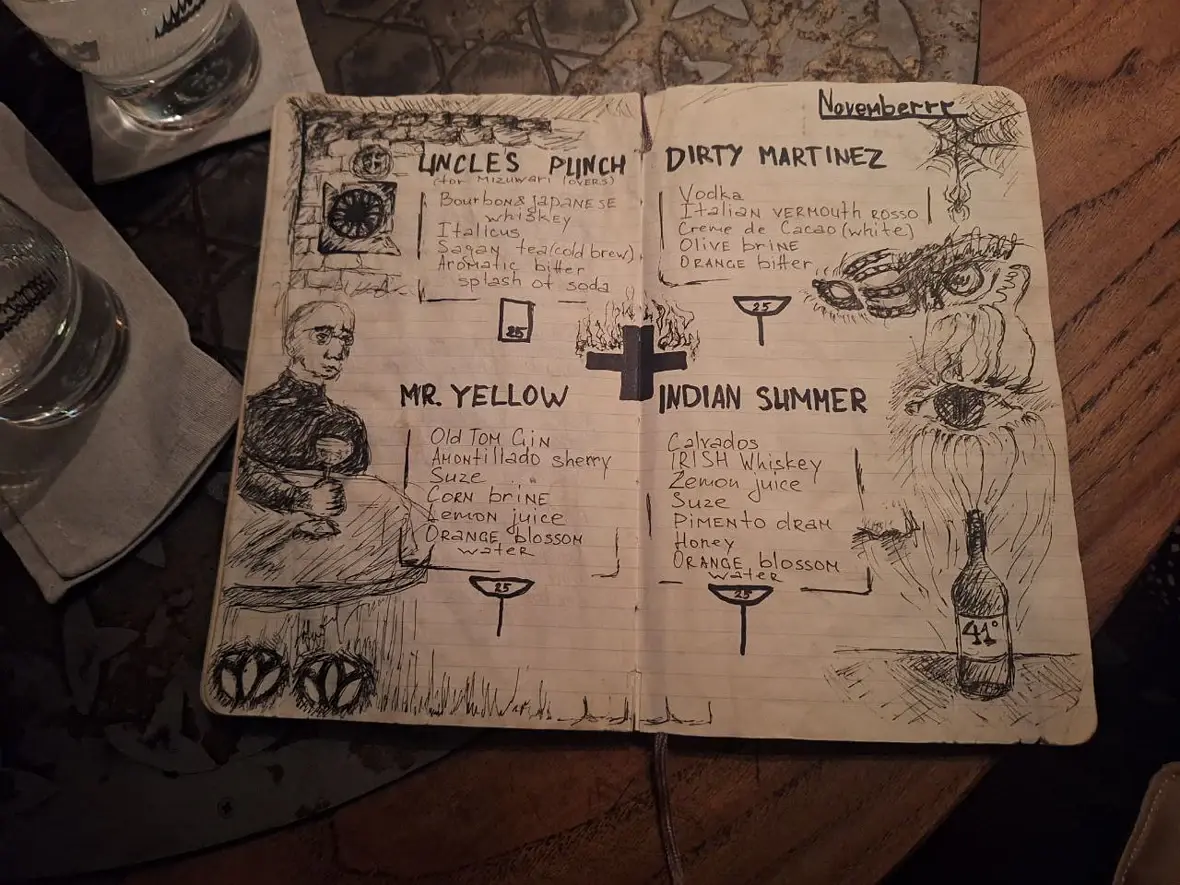 Novemberrr
UNCLE'S PUNCH
(for Mizuwari lovers)
Bourbon & Japanese
whiskey
Italicus
Sagan tea (cold brew)
Aromatic bitter
splash of soda
25
DIRTY MARTINEZ
Vodka
Italian vermouth rosso
Creme de Cacao (white)
Olive brine
Orange bitter
25
MR. YELLOW
Old Tom Gin
Amontillado sherry
Suze
Corn brine
Lemon juice
Orange blossom
water
25
INDIAN SUMMER
Calvados
IRISH Whiskey
Lemon juice
Suze
Pimento dram
Honey
Orange blossom
water
25
41°